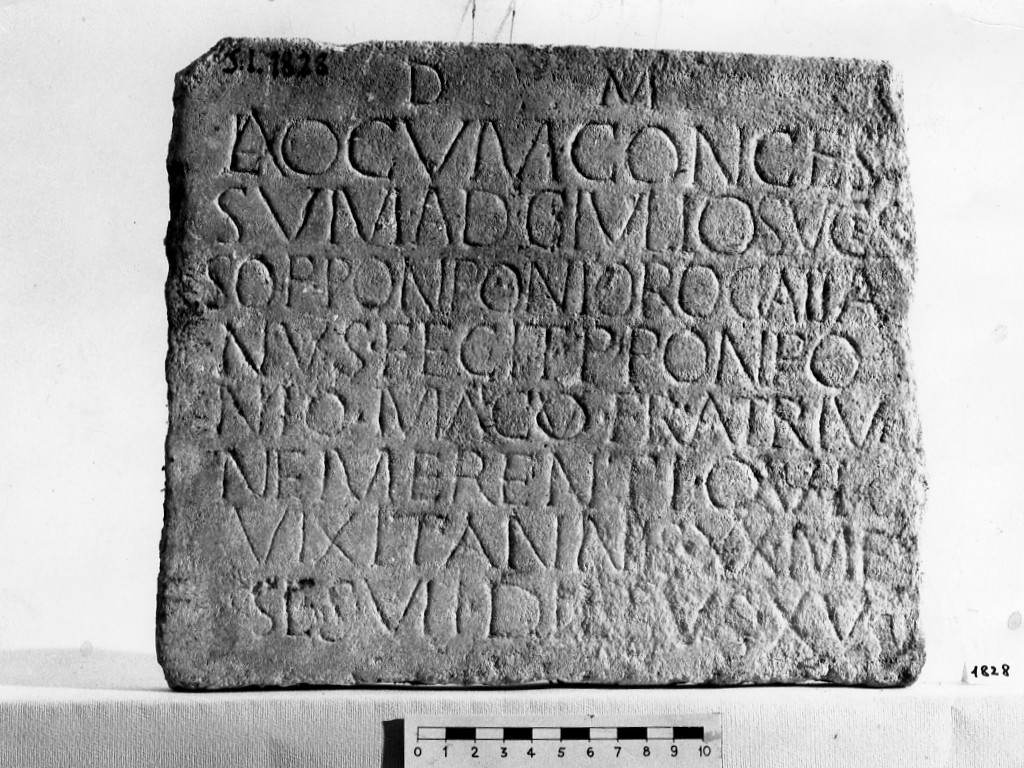 J.L. 1828
D M
LAOCVM CONCES
SVM AD C IVLIO SVCES
SOR P PONPONIO ROCAIIA
NVS FECIT P PONPO
NIO MAGO FRATRI V
NEMERENTI QVI
VIXIT ANNIS XX ME
SES VII DIEVS XVI
1828
0 1 2 3 4 5 6 7 8 9 10